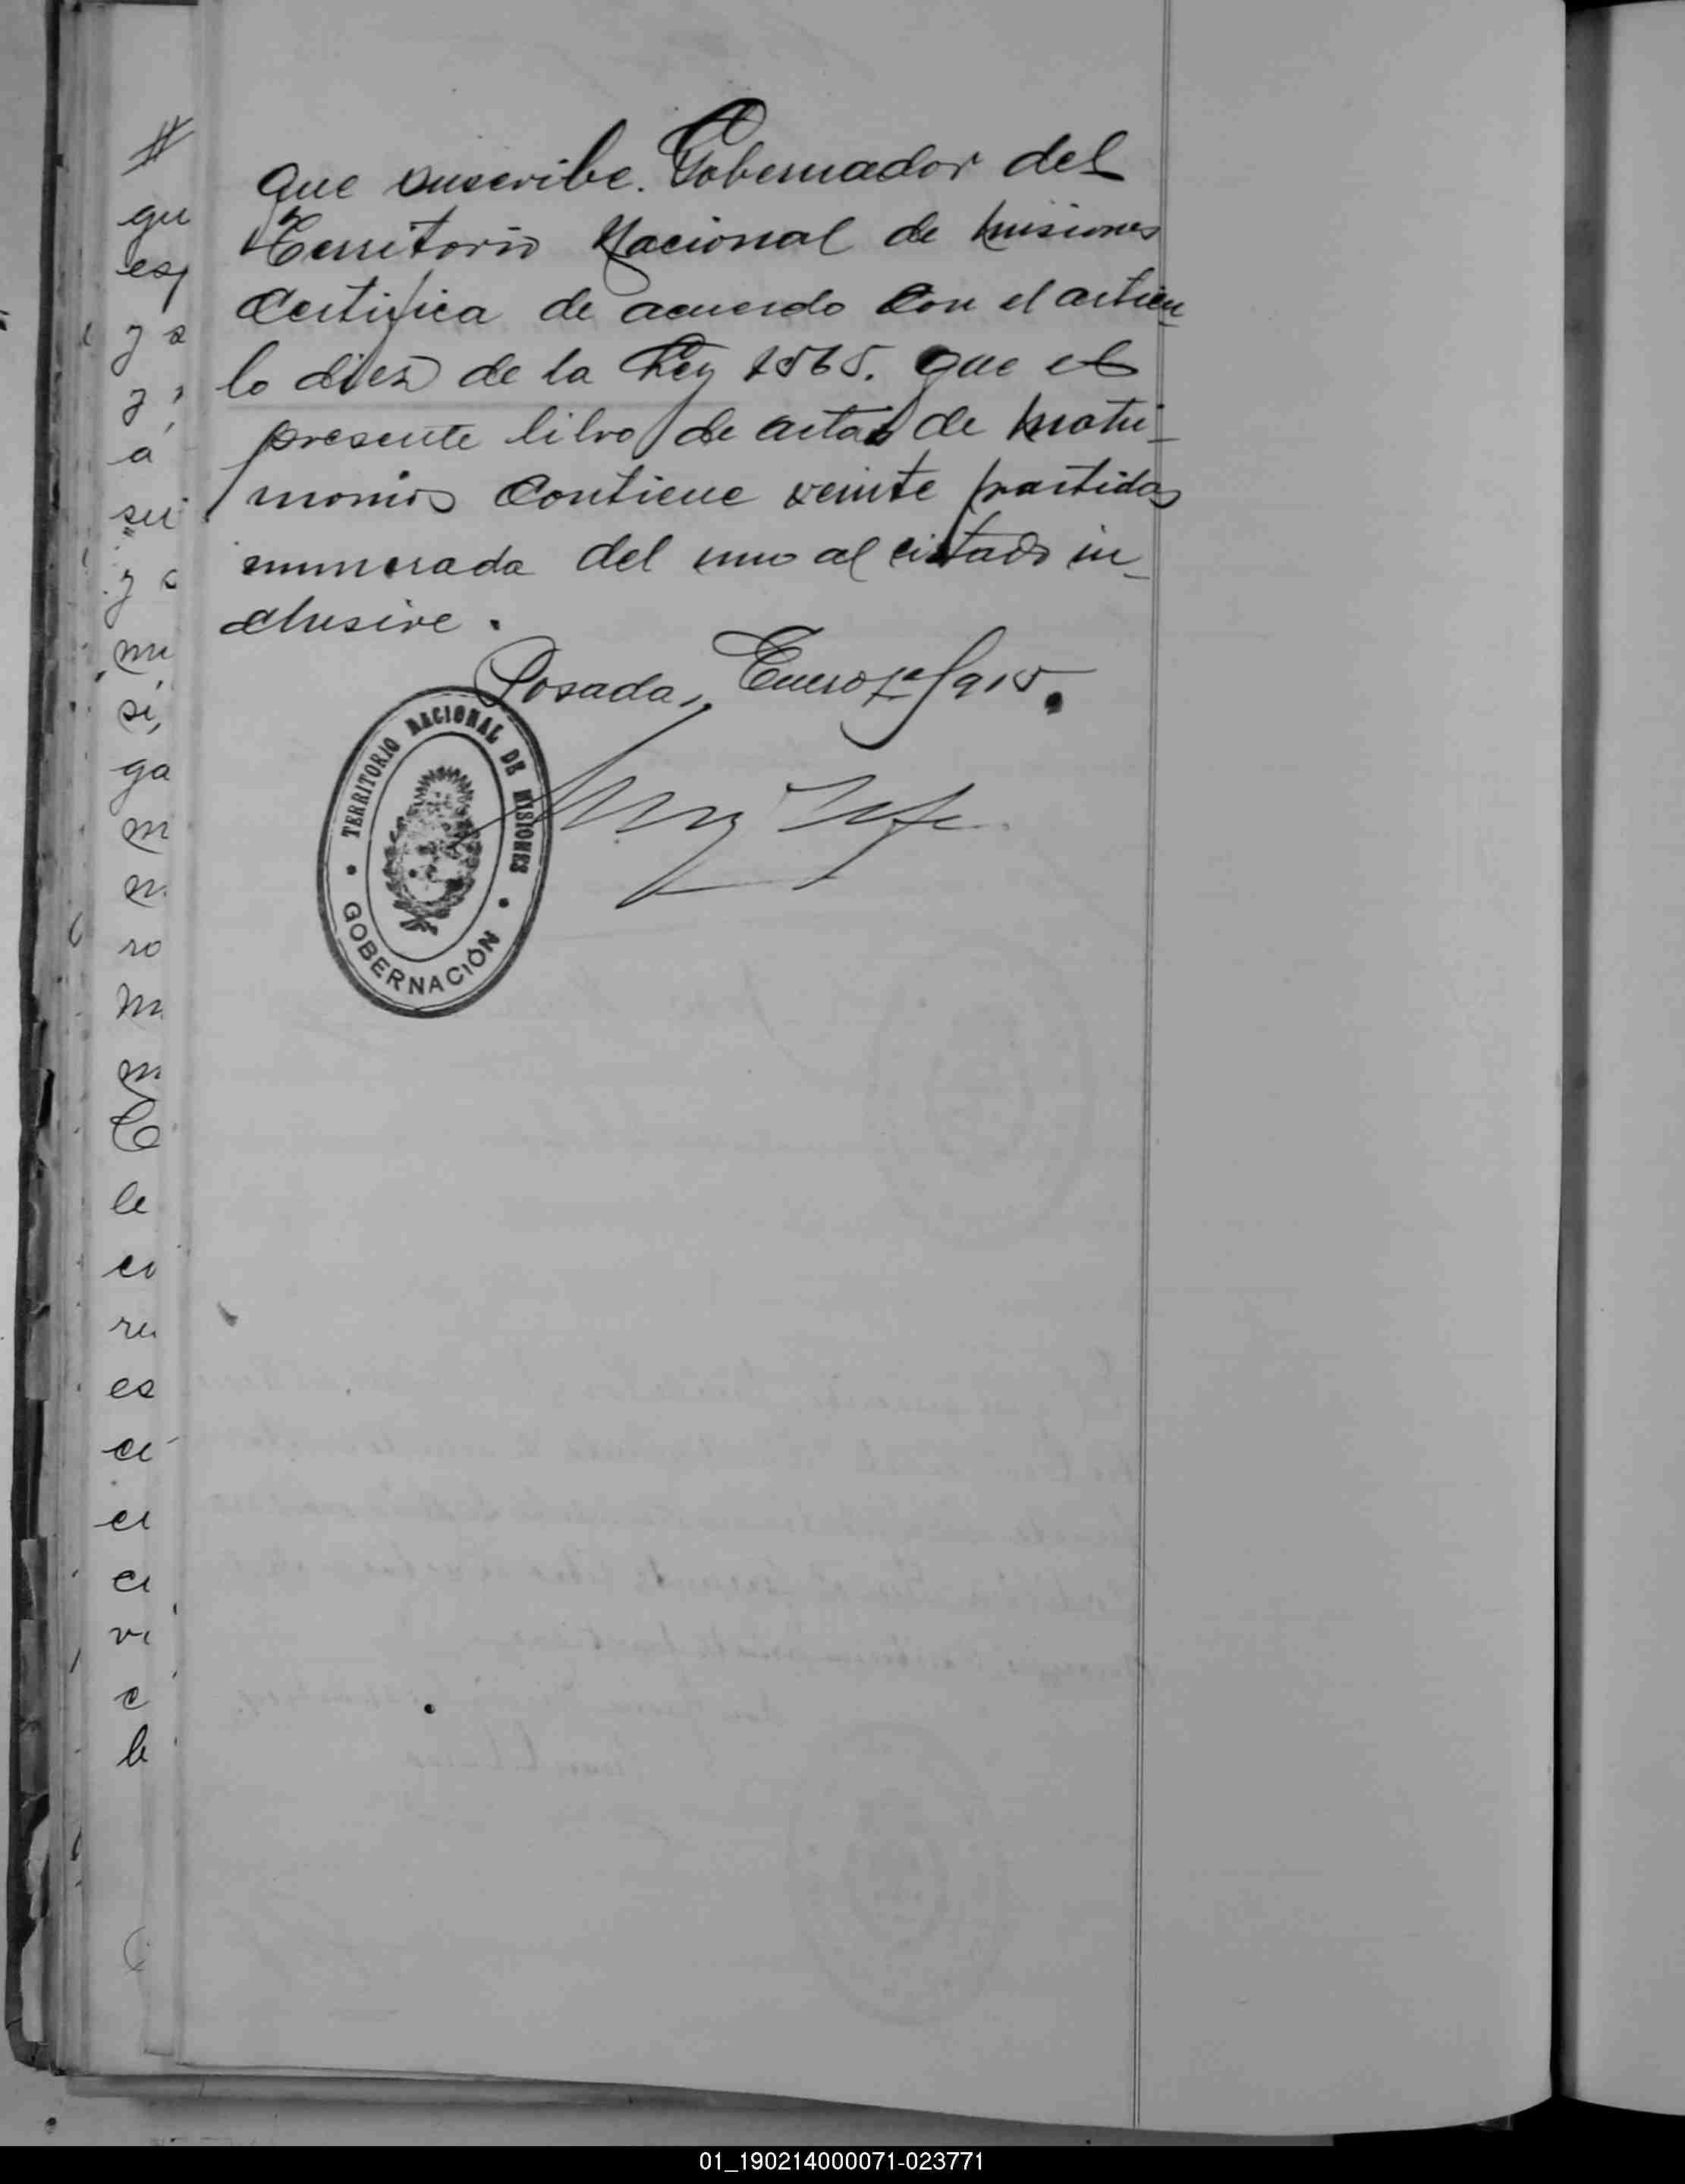 que suscribe. Gobernador del
Territorio Nacional de Misiones
Certifica de acuerdo con el articu
lo diez de la Ley 1565. que el
presente libro de actas de matri-
monios contiene veinte partidas
enumerada del uno al citado in-
clusive.
Posadas, Enero 1º 1915.
TERRITORIO NACIONAL DE MISIONES
GOBERNACIÓN
qu
esp
á
su
mi
si,
ga
m
ro
m
le
co
re
es
ci
ci
ci
vi
c
le
01_190214000071-023771